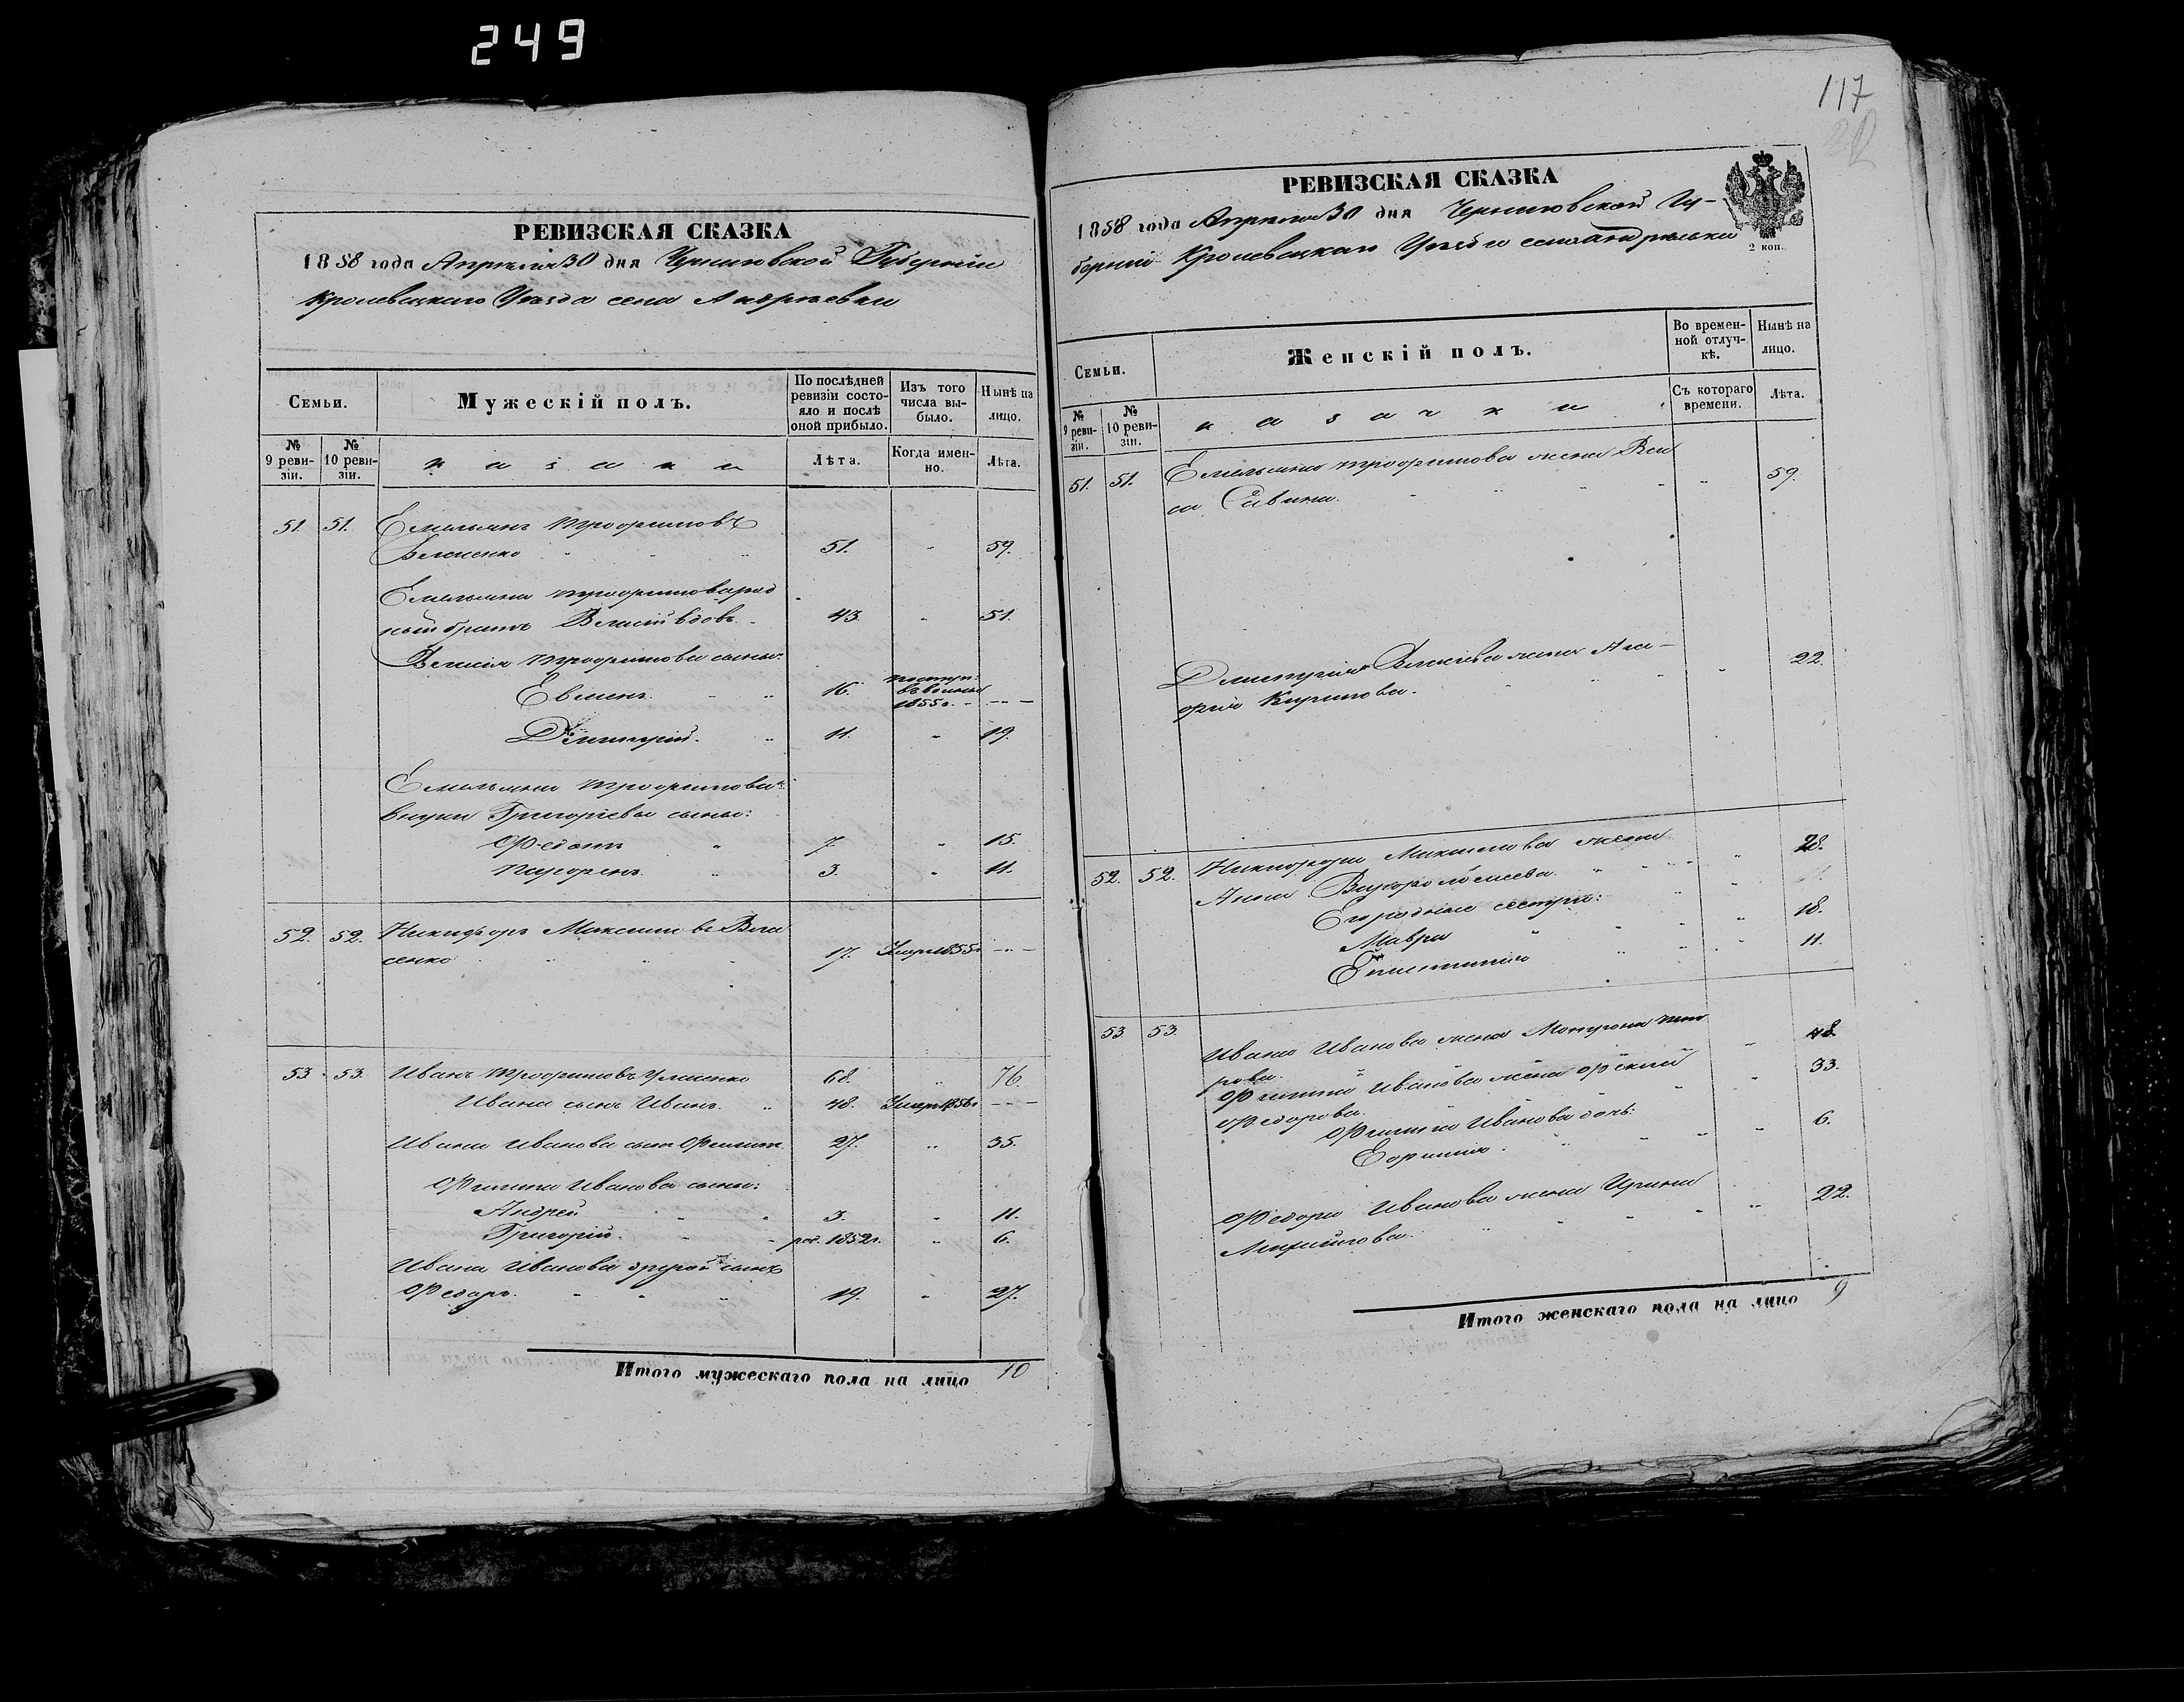 249
РЕВИЗСКАЯ СКАЗКА
1858 года Апреля 30 дня Черниговской Губернии
Кролевецкаго Уезда села Андреевки
Семьи.
Мужескій полъ.
По послѣдней ревизіи состояло и послѣ оной прибыло.
Изъ того числа выбыло.
Нынѣ на лицо.
№ 9 ревизіи.
№ 10 ревизіи.
казаки
Лѣта.
Когда именно.
Лѣта.
51. 51. Емельянъ Трофимовъ
51. 59.
Емельяна Трофимова род
ный братъ Власій вдовъ 43. 51.
Власія Трофимова сыны:
Евменъ. 16. поступ. 1855 г.
Дмитрій. 11. 19.
Емельяна Трофимова
внуки Григоріевы сыны:
Федотъ 7. 15.
3. 11.
52. 52. Никифоръ Максимовъ Вла
сенко 17. Умеръ 1855 г.
53. 53. Иванъ Трофимовъ 68. 76.
Ивана сынъ Иванъ. 48. Умеръ 1856 г.
Ивана Иванова сынъ Филипъ. 27. 35.
Филипа Иванова сыны:
Андрей 3. 11.
Григорій. рож. 1852 г. 6.
Ивана Иванова другой сынъ
Федоръ. 19. 27.
Итого мужескаго пола на лицо 10
117
РЕВИЗСКАЯ СКАЗКА
2 коп.
1858 года Апреля 30 дня Черниговской Гу-
берніи Кролевецкаго Уезда села Андреевки
Семьи.
Женскій полъ.
Во временной отлучкѣ.
Нынѣ на лицо.
№ 9 ревизіи.
№ 10 ревизіи.
казачки
Съ котораго времени.
Лѣта.
51. 51. Емельяна Трофимова жена Ва
са Савина. 59.
Дмитрія Власіева жена Ага-
фія Кирилова. 22.
52. 52. Никифора Максимова жена
Анна 28.
Его родныя сестры:
Мавра 18.
11.
53. 53. Ивана Иванова жена Мотрона
48.
Филипа Иванова жена
Федорова. 33.
Филипа Иванова дочь:
Ефимія. 6.
Федора Иванова жена Ирина
22.
Итого женскаго пола на лицо 9